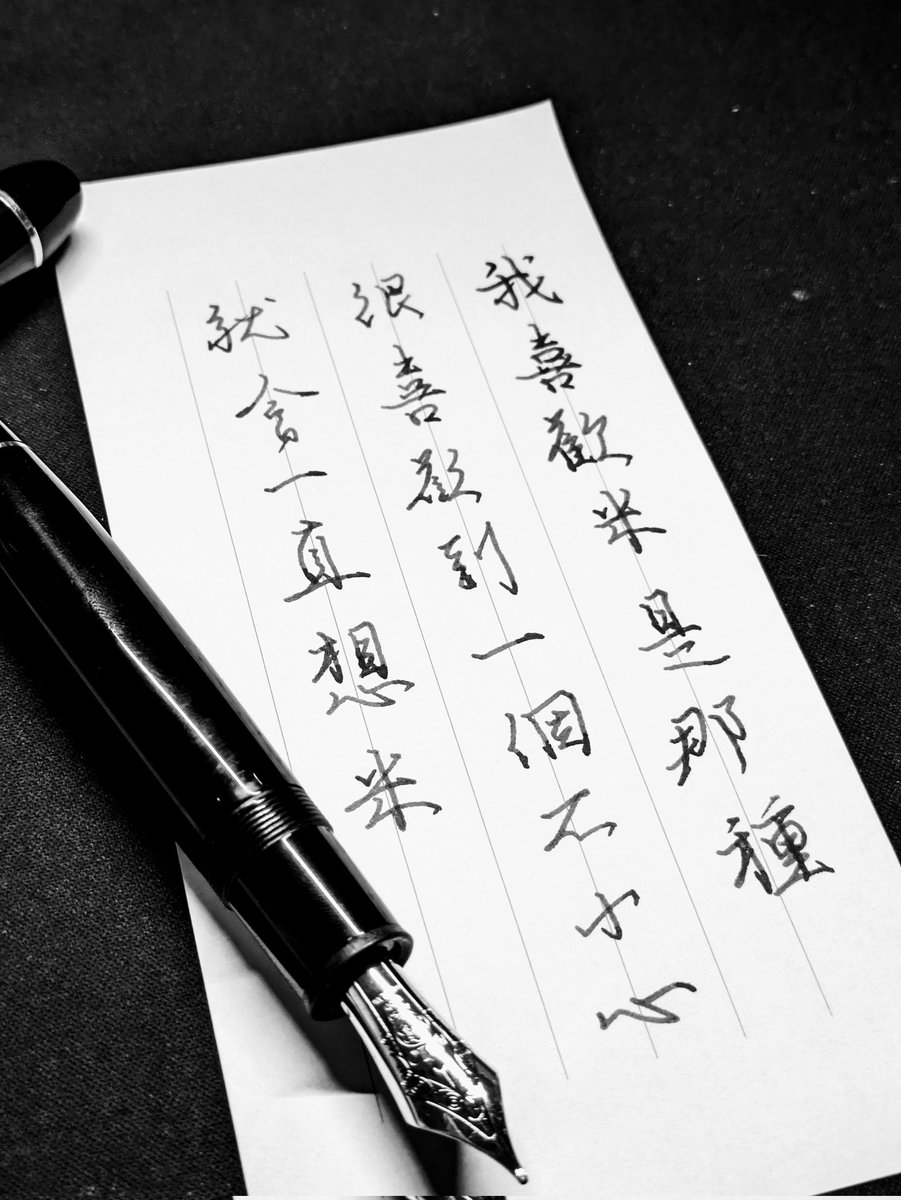 我喜歡米是那種
很喜歡到一個不小心
就會一直想米